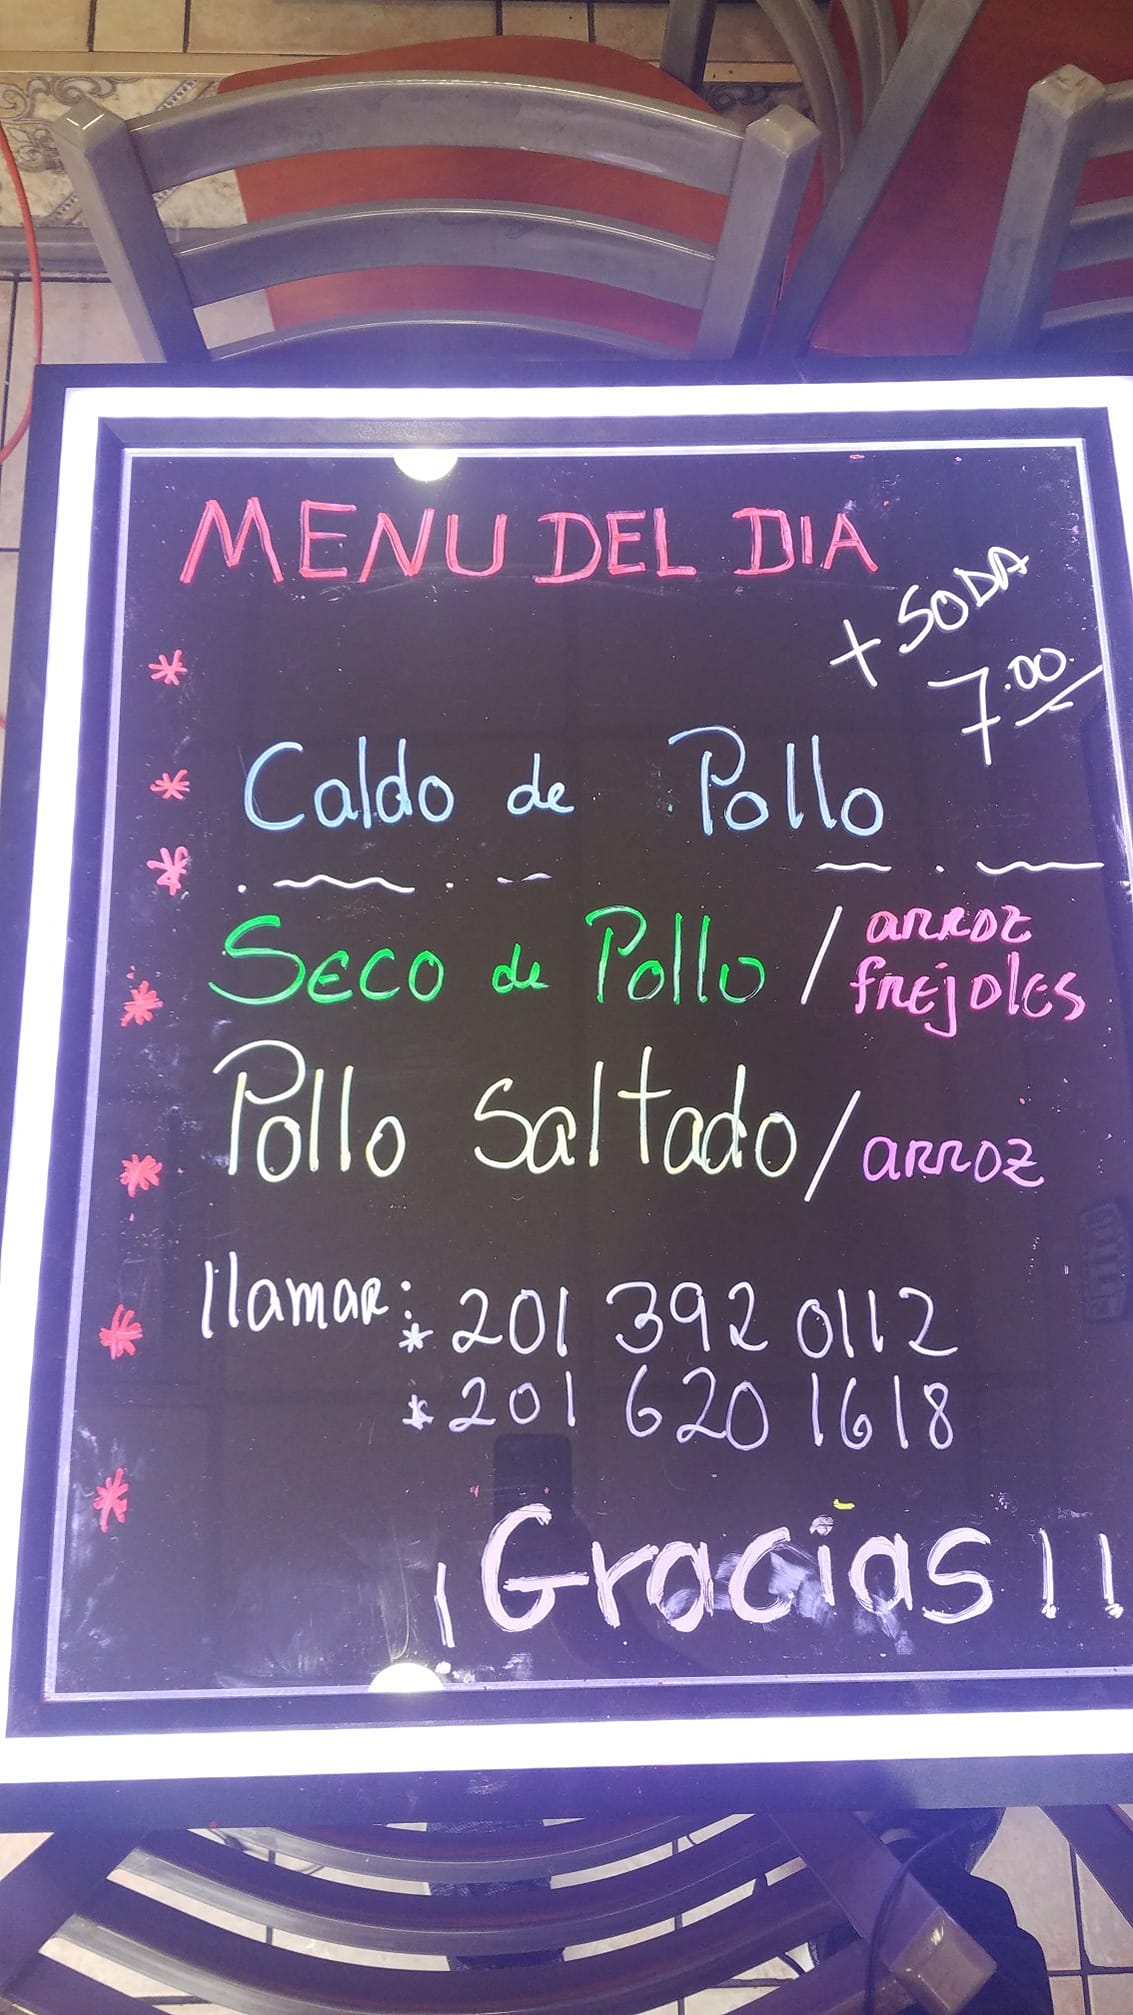 MENU DEL DIA
+ SODA
7.00
* Caldo de Pollo
Seco de Pollo / arroz
frejoles
Pollo Saltado / arroz
llamar: * 201 392 0112
* 201 620 1618
¡Gracias!!